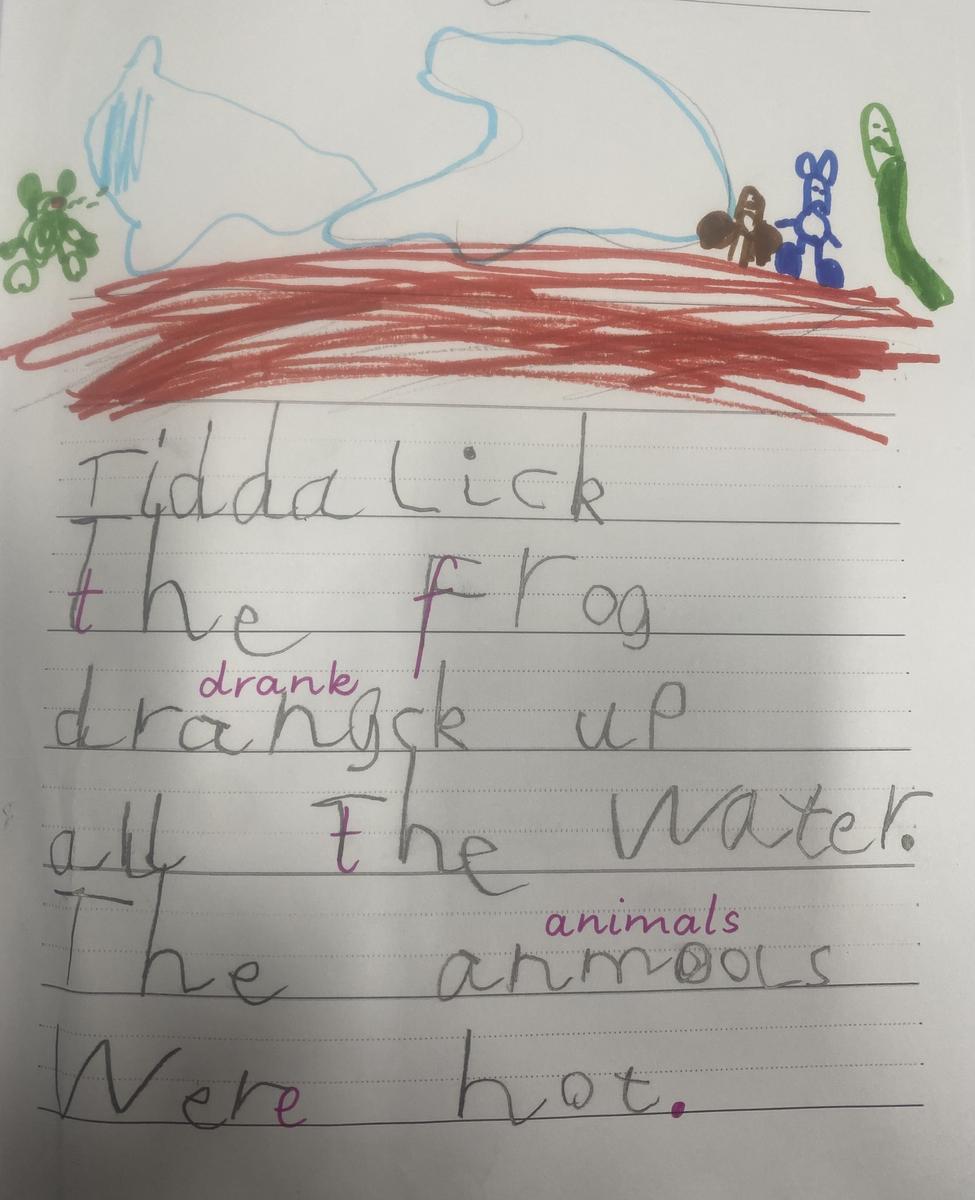 Tidda Lick
The frog
drank
drangck up
all the Water.
animals
The anmools
Were hot.